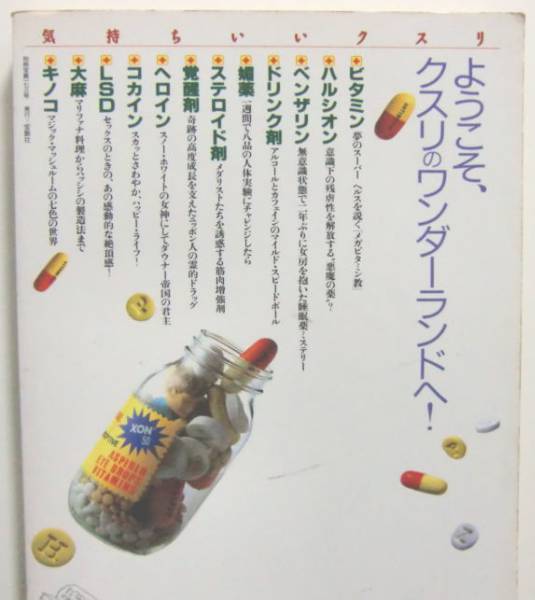 気持ちいいクスリ
ようこそ、
クスリのワンダーランドへ!
ビタミン 夢のスーパーヘルスを説く「メガビタミン教」
ハルシオン 意識下の残虐性を解放する“悪魔の薬”!?
ベンザリン 無意識状態で二年ぶりに女房を抱いた睡眠薬ミステリー
ドリンク剤 アルコールとカフェインのマイルド・スピードボール
媚薬 一週間で八品の人体実験にチャレンジしたら
ステロイド剤 メダリストたちを誘惑する筋肉増強剤
覚醒剤 奇跡の高度成長を支えたニッポン人の霊的ドラッグ
ヘロイン スノー・ホワイトの女神にしてダウナー帝国の君主
コカイン スカッとさわやか、ハッピー・ライフ!
LSD セックスのときの、あの感動的な絶頂感!
大麻 マリファナ料理からハッシシの製造法まで
キノコ マジック・マッシュルームの七色の世界
XON
50
ASPIRIN
EYE DROPS
VITAMINS